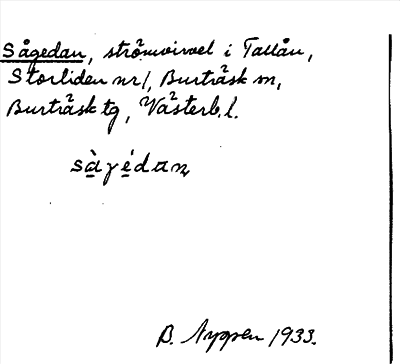 Sågedan, strömvirvel i Tallån,
Storliden nr 1, Burträsk sn,
Burträsk tg, Västerb. l.
sàgédan
B. 1933.